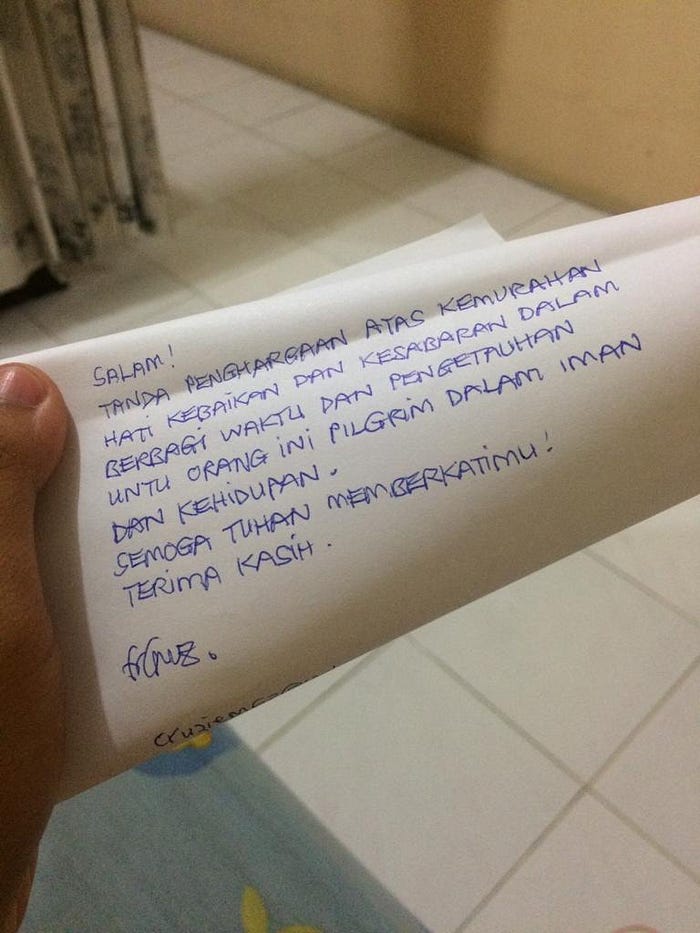 SALAM!
TANDA PENGHARGAAN ATAS KEMURAHAN
HATI KEBAIKAN DAN KESABARAN DALAM
BERBAGI WAKTU DAN PENGETAUHAN
UNTU ORANG INI PILGRIM DALAM IMAN
DAN KEHIDUPAN.
SEMOGA TUHAN MEMBERKATIMU!
TERIMA KASIH.